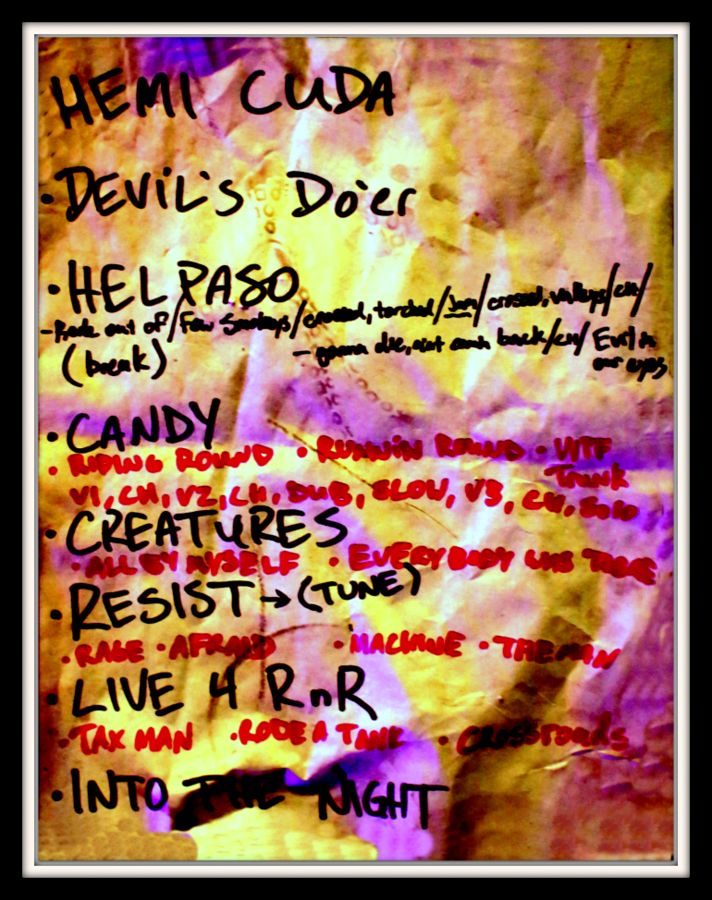 HEMI CUDA
• DEVIL'S Do'er
• HEL PASO
- Rode out of / Few Smokeys / crossed, torched / Jam / crossed, valleys / CH /
(break) - gonna die, aint comin back / CH / Evil in our eyes
• CANDY
• RIDING ROUND • RUNNIN ROUND • WTF Trunk
V1, CH, V2, CH, DUB, SLOW, V3, CH, Solo
• CREATURES
• ALL BY MYSELF • EVERYBODY
• RESIST → (TUNE)
• RAGE • AFRAID • MACHINE • THE MAN
• LIVE 4 RnR
• TAX MAN • RODE A TANK • CROSSROADS
• INTO THE NIGHT